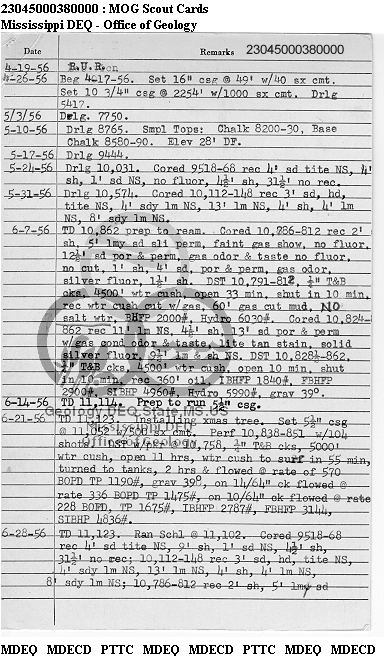 23045000380000 : MOG Scout Cards
Mississippi DEQ - Office of Geology
Date Remarks 23045000380000
4-19-56 R.U.R.
4-26-56 Beg 4-17-56. Set 16" csg @ 49' w/40 sx cmt.
Set 10 3/4" csg @ 2254' w/1000 sx cmt. Drlg
5417.
5/3/56 Drlg. 7750.
5-10-56 Drlg 8765. Smpl Tops: Chalk 8200-30, Base
Chalk 8580-90. Elev 28' DF.
5-17-56 Drlg 9444.
5-24-56 Drlg 10,031. Cored 9518-68 rec 4' sd tite NS, 4'
sh, 1' sd NS, no fluor, 4½' sh, 31½' no rec.
5-31-56 Drlg 10,574. Cored 10,112-148 rec 3' sd, hd,
tite NS, 4' sdy lm NS, 13' lm NS, 4' sh, 4' lm
NS, 8' sdy lm NS.
6-7-56 TD 10,862 prep to ream. Cored 10,786-812 rec 2'
sh, 5' lmy sd sli perm, faint gas show, no fluor,
12½' sd por & perm, gas odor & taste no fluor,
no cut, 1' sh, 4' sd, por & perm, gas odor,
silver fluor, 1½' sh. DST 10,791-812, ¼" T&B
cks, 4500' wtr cush, open 33 min, shut in 10 min,
rec wtr cush cut w/gas, 60' gas cut mud, NO
salt wtr, BHFP 2000#, Hydro 6030#. Cored 10,824-
862 rec 11' lm NS, 4½' sh, 13' sd por & perm
w/gas cond odor & taste, lite tan stain, solid
silver fluor, 9½' lm & sh NS. DST 10,828½-862,
¼" T&B cks, 4500' wtr cush, open 10 min, shut
in 10 min, rec 360' oil, IBHFP 1840#, FBHFP
2900#, SIBHP 4960#, Hydro 5990#, grav 39°.
6-14-56 TD 11,114. Prep to run 5½" csg.
Geology.DEQ.State.MS.US
6-21-56 TD 11,123. Installing xmas tree. Set 5½" csg
Mississippi DEQ
@ 11,052 w/500 sx cmt. Perf 10,838-851 w/104
Office of Geology
shots. DST w/pkr @ 10,758, ¼" T&B cks, 5000'
wtr cush, open 11 hrs, wtr cush to surf in 55 min,
turned to tanks, 2 hrs & flowed @ rate of 570
BOPD TP 1190#, grav 39°, on 14/64" ck flowed @
rate 336 BOPD TP 1475#, on 10/64" ck flowed @ rate
228 BOPD, TP 1675#, IBHFP 2787#, FBHFP 3144,
SIBHP 4836#.
6-28-56 TD 11,123. Ran Schl @ 11,102. Cored 9518-68
rec 4' sd tite NS, 9' sh, 1' sd NS, 4½' sh,
31½' no rec; 10,112-148 rec 3' sd, hd, tite NS,
4' sdy lm NS, 13' lm NS, 4' sh, 4' lm NS,
8' sdy lm NS; 10,786-812 rec 2' sh, 5' lmy sd
MDEQ MDECD PTTC MDEQ MDECD PTTC MDEQ MDECD PTTC MDEQ MDECD